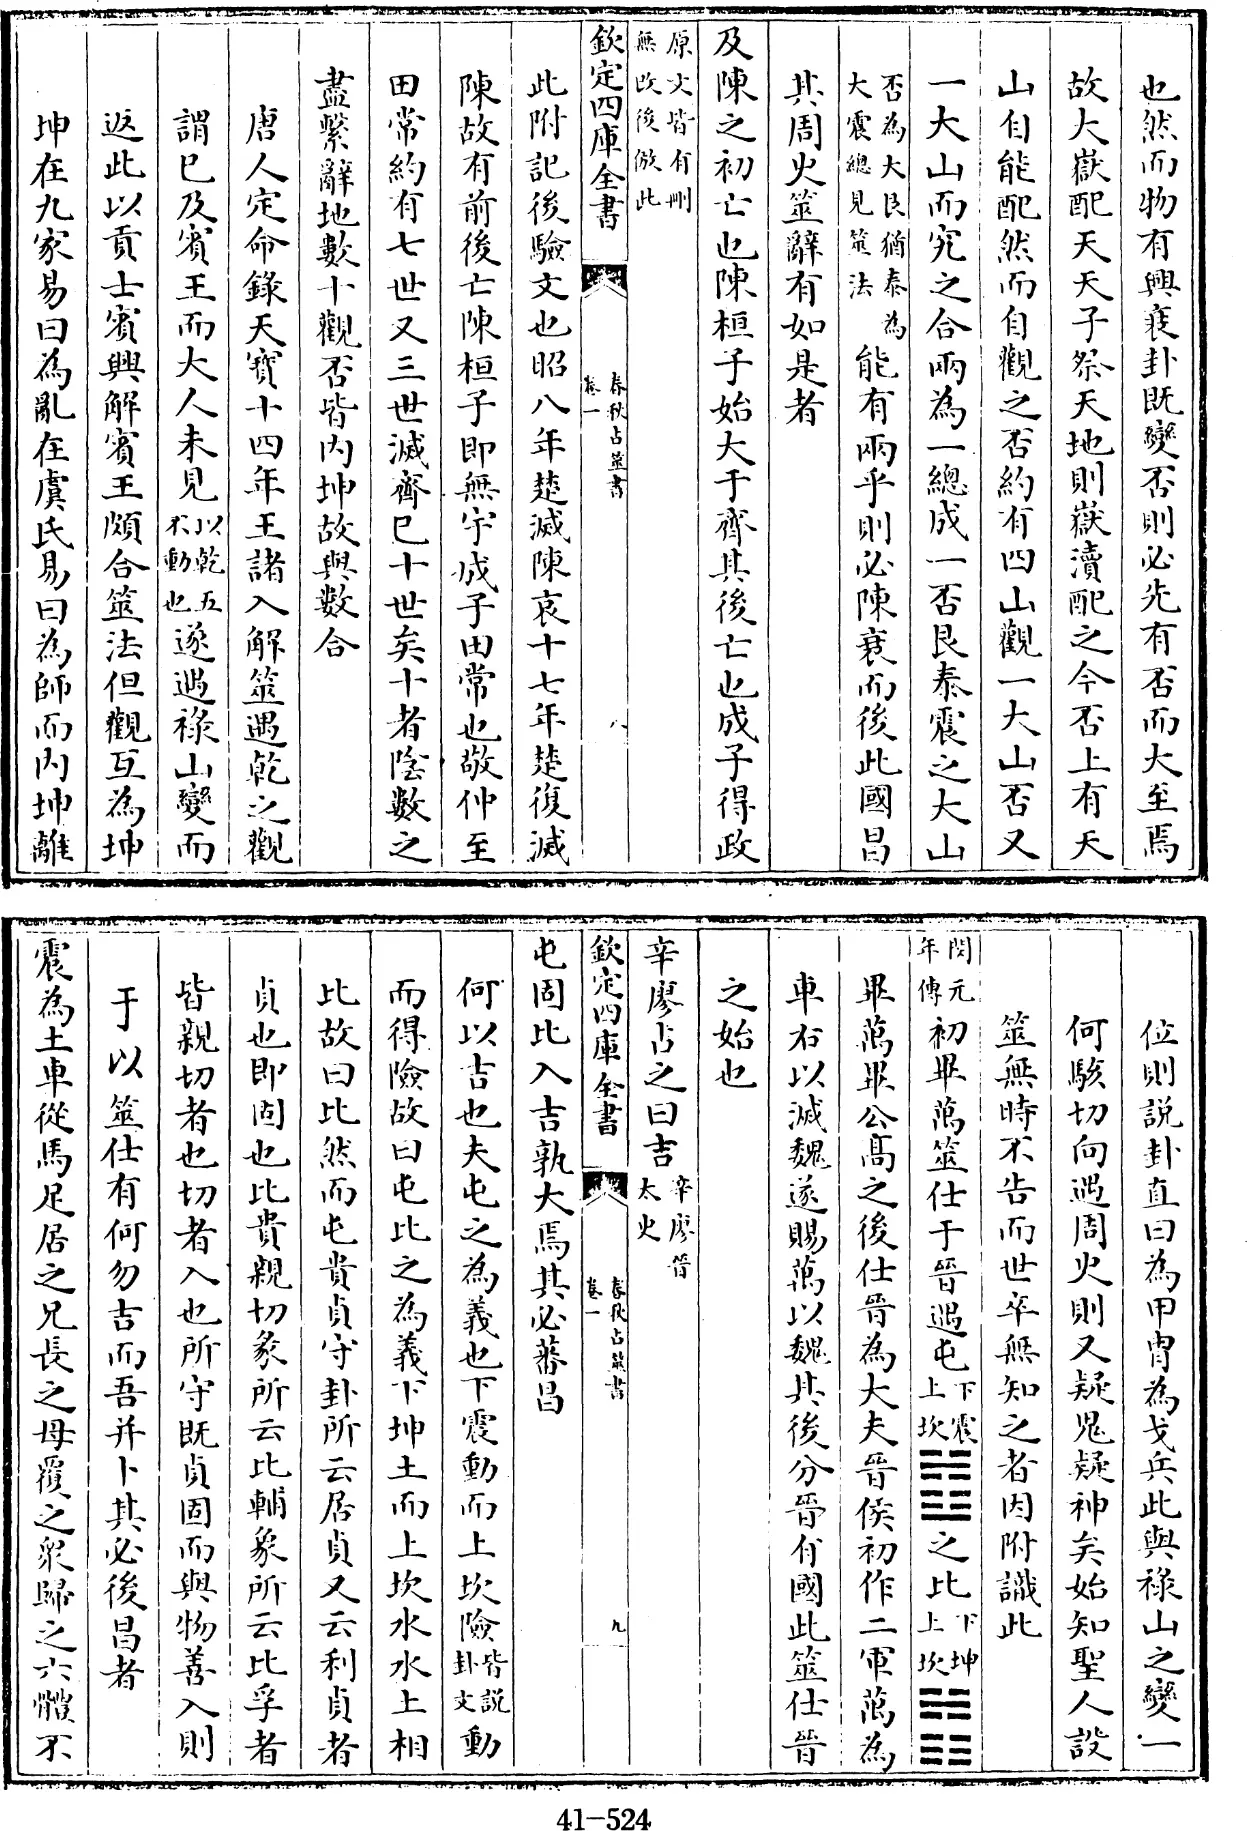 也然而物有興衰卦既變否則必先有否而大至焉
故大嶽配天天子祭天地則嶽瀆配之今否上有天
山自能配然而自觀之否約有四山觀一大山否又
一大山而究之合兩為一總成一否艮泰震之大山
否為大艮猶泰為大震總見筮法能有兩乎則必陳衰而後此國昌
其周火筮辭有如是者
及陳之初亡也陳桓子始大于齊其後亡也成子得政
原文皆有刪無改後倣此
欽定四庫全書 春秋占筮書 卷一 八
此附記後驗文也昭八年楚滅陳哀十七年楚復滅
陳故有前後亡陳桓子即無宇成子田常也敬仲至
田常約有七世又三世滅齊已十世矣十者陰數之
盡繫辭地數十觀否皆内坤故與數合
唐人定命錄天寶十四年王諸入解筮遇乾之觀
謂已及賓王而大人未見以乾五不動也遂遇祿山變而
返此以貢士賓興解賓王頗合筮法但觀互為坤
坤在九家易曰為亂在虞氏易曰為師而内坤離
位則説卦直曰為甲胄為戈兵此與祿山之變一
何駭切向遇周火則又疑鬼疑神矣始知聖人設
筮無時不告而世卒無知之者因附識此
閔元年傳初畢萬筮仕于晉遇屯下震上坎䷂之比下坤上坎䷇
畢萬畢公高之後仕晉為大夫晉侯初作二軍萬為
車右以滅魏遂賜萬以魏其後分晉有國此筮仕晉
之始也
辛廖占之曰吉辛廖晉太史
欽定四庫全書 春秋占筮書 卷一 九
屯固比入吉孰大焉其必蕃昌
何以吉也夫屯之為義也下震動而上坎險皆説卦文動
而得險故曰屯比之為義下坤土而上坎水水上相
比故曰比然而屯貴貞守卦所云居貞又云利貞者
貞也即固也比貴親切彖所云比輔象所云比孚者
皆親切者也切者入也所守既貞固而與物善入則
于以筮仕有何勿吉而吾并卜其必後昌者
震為土車從馬足居之兄長之母覆之衆歸之六體不